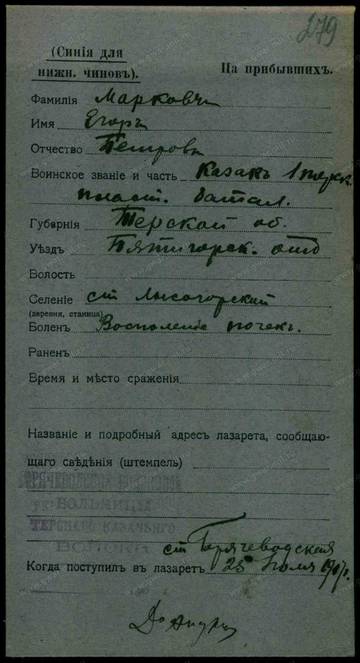 279
(Синія для
нижн. чиновъ).
На прибывшихъ.
Фамилія
Имя Егоръ
Отчество Петровъ
Воинское званіе и часть Казакъ 1 терск.
пласт. батал.
Губернія Терской об.
Уѣздъ Пятигорск. отд
Волость
Селеніе ст Лысогорский
(деревня, станица)
Боленъ Воспаленіе почекъ.
Раненъ
Время и мѣсто сраженія
Названіе и подробный адресъ лазарета, сообщаю-
щаго свѣдѣнія (штемпель)
БОЛЬНИЦЫ
ТЕРСКАГО КАЗАЧЬЯГО
ВОЙСКА
ст Горячеводская
Когда поступилъ въ лазаретъ 25